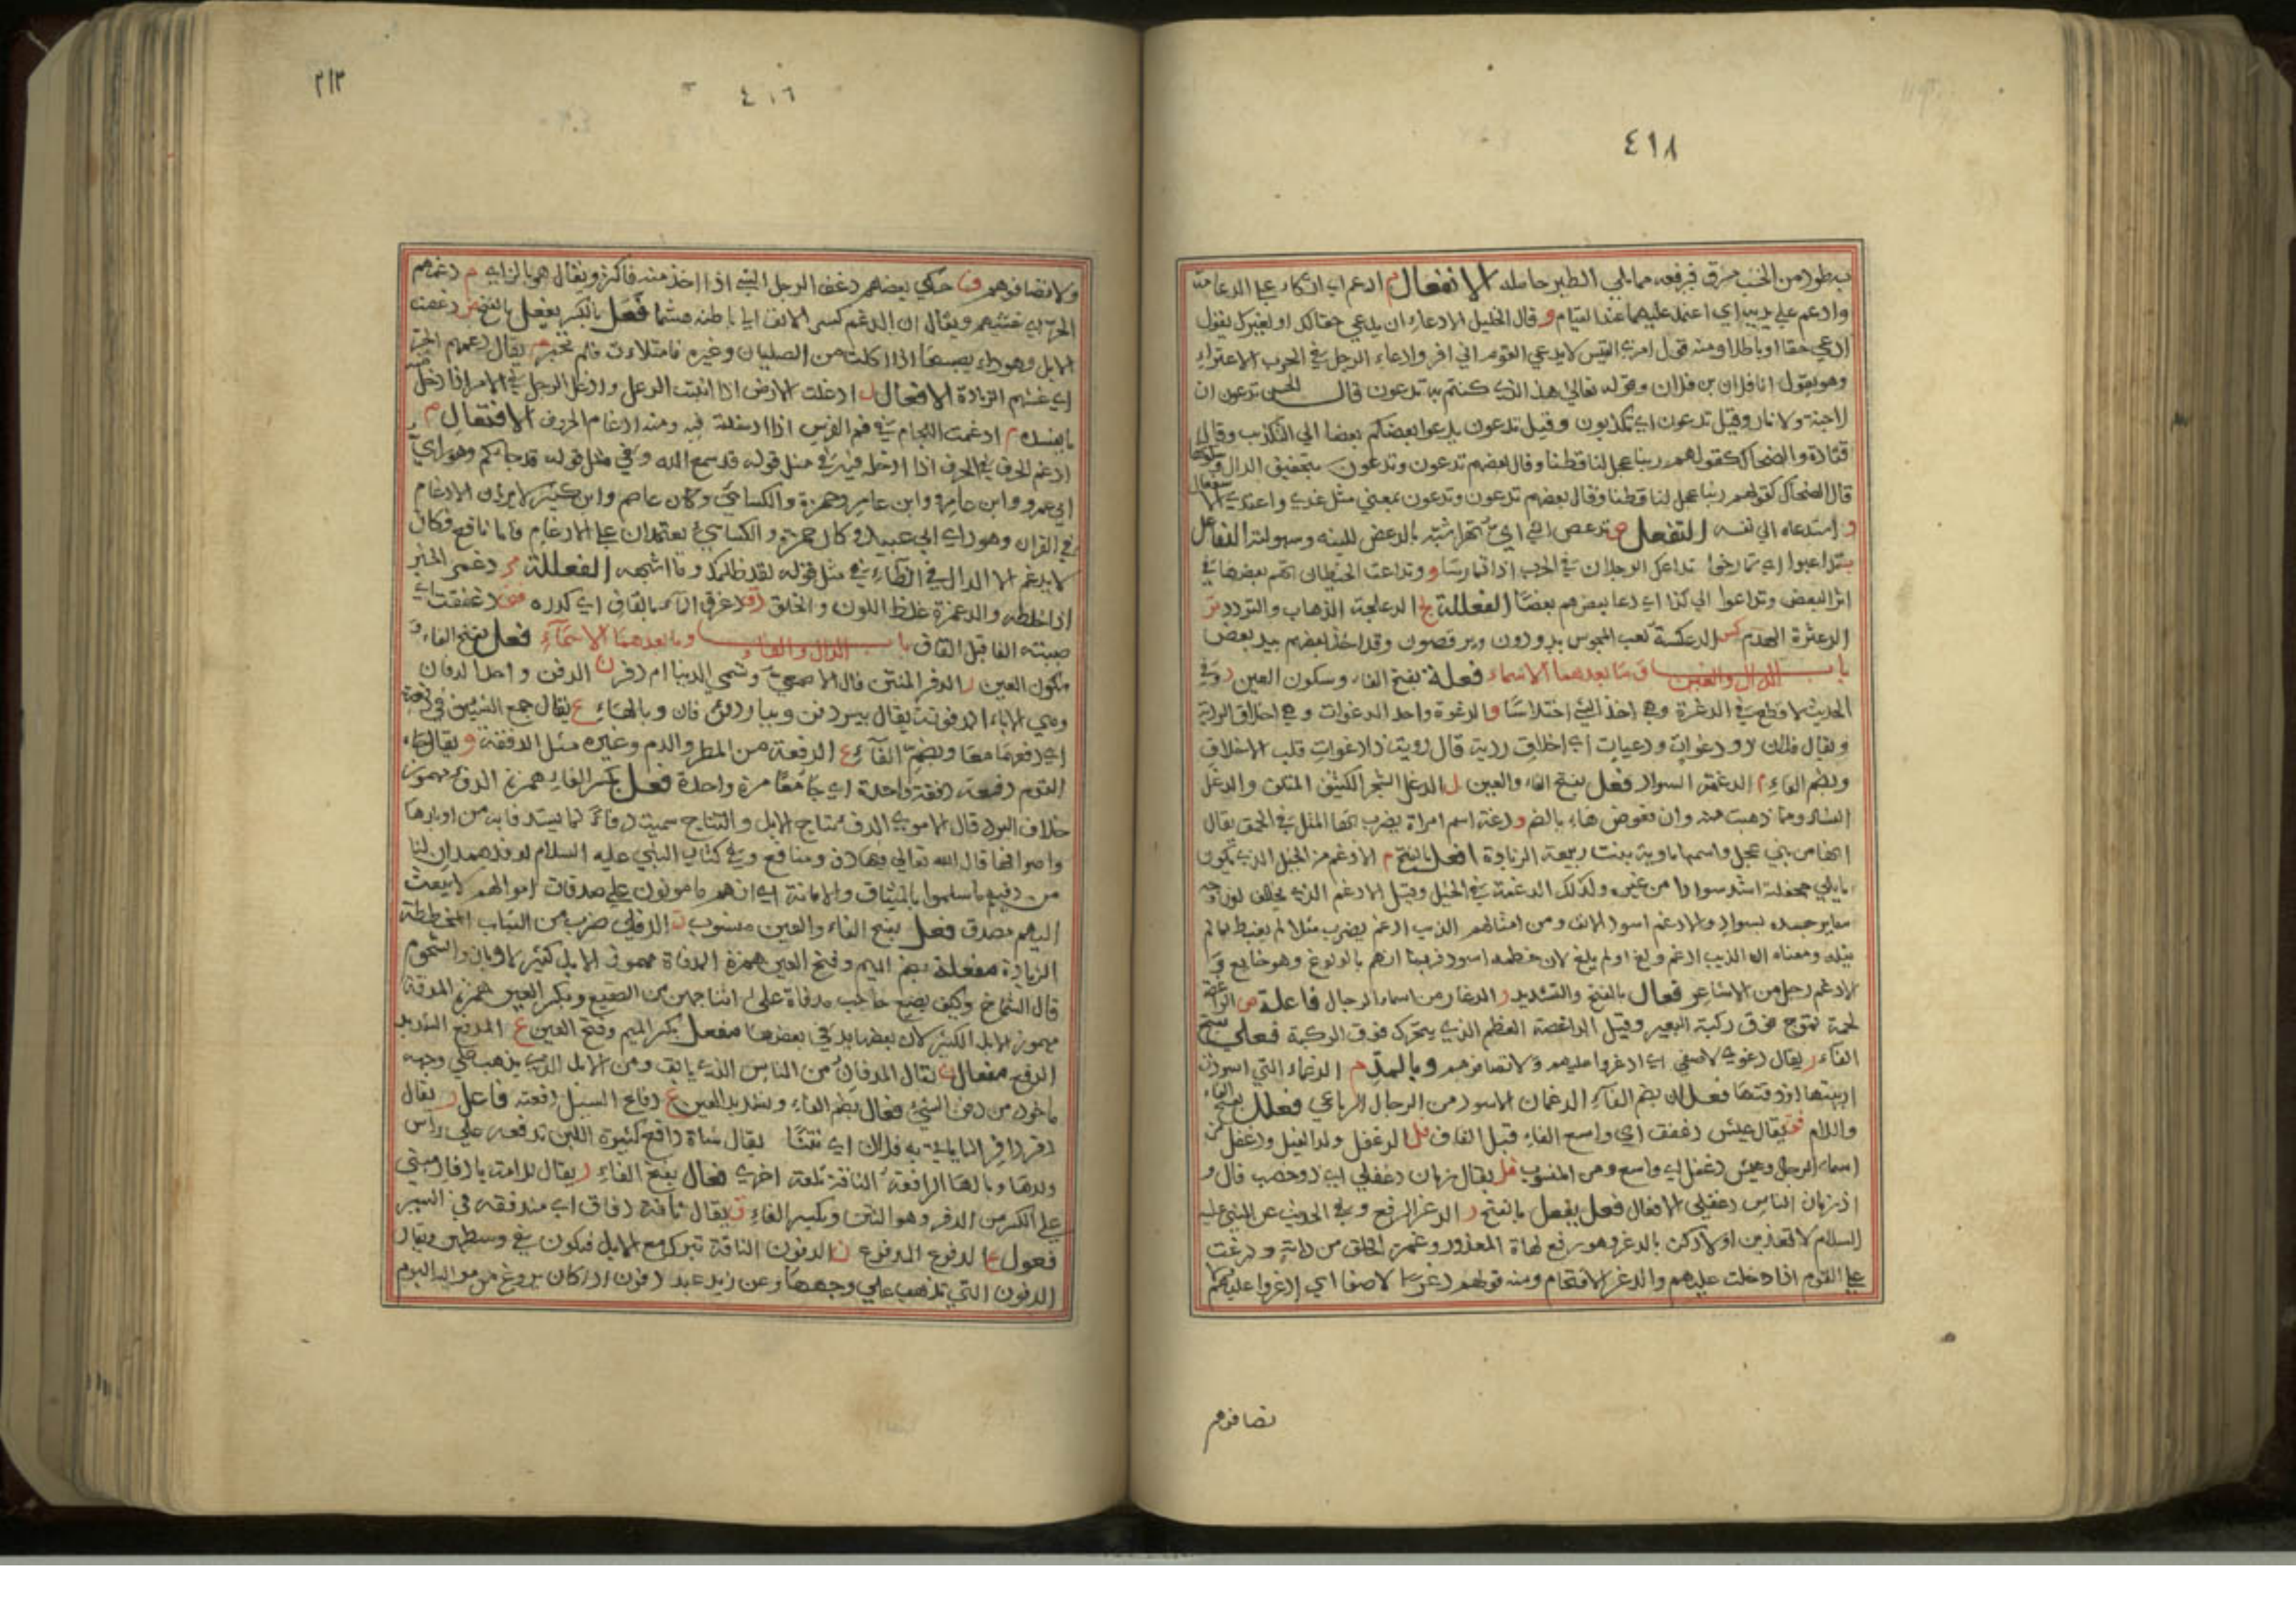 ٤١٨
بطود من الخشب فيرفعه مما يلي الطير حامله الانفعال م ادعم اي اتكأ على الدعامة
وادعم على يديه اي اعتمد عليهما عند القيام و قال الخليل الادعاء ان يدعي حقا لك او لغيرك يقول
ادعى حقا او باطلا ومنه قول امرئ القيس لا يدعي القوم اني افر والادعاء الرجل في الحرب الاعتزاء
وهو يقول انا فلان بن فلان وقوله تعالى هذا الذي كنتم به تدعون قال الحسن تدعون ان
لا جنة ولا نار وقيل تدعون اي تكذبون وقيل تدعون يدعوا بعضكم بعضا الى التكذيب وقال
قتادة والضحاك كقولهم ربنا عجل لنا قطنا وقال بعضهم تدعون وتدعون بتخفيف الدال
قال الضحاك كقولهم ربنا عجل لنا قطنا وقال بعضهم تدعون وتدعون بمعنى مثل غدي واغتدى
و استدعاه الى نفسه التفعل ص تدعص الشي اي تهرا شبه بالدعص للينه وسهولته التفاعل
تداعبوا اي تمازحوا تداعك الرجلان في الحرب اذا تمارسا و وتداعت الحيطان اتهم بعضها في
اثر البعض وتداعوا الى كذا اي دعا بعضهم بعضا الفعللة ج الدعلجة الذهاب والتردد
الدعثرة الهدم كس الدعكسة لعب المجوس يدورون ويرقصون وقد اخذ بعضهم بيد بعض
باب الدال والغين وما بعدهما الاسماء فعلة بفتح الفاء وسكون العين ر وفي
الحديث لا قطع في الدغرة وهي اخذ الشي اختلاسا و الدغوة واحد الدغوات وهي اخلاق الردية
ويقال فلان ذو دغوات ودغيات اي اخلاق ردية قال روبة ذا دغوات قلب الاخلاق
وبضم الفاء م الدغمة السواد فعل بفتح الفاء والعين ل الدغل الشجر الكثيف الملتف والدغل
الفساد ومما ذهبت منه وان فعوض هاء بالضم و دغة اسم امراة يضرب بها المثل في الحمق يقال
انها من بني عجل واسمها ماوية بنت ربيعة الزيادة افعل بالفتح م الادغم من الخيل الذي يكون
ما يلي جحفلته اشد سوادا من غيره وكذلك الدغمة في الخيل وقيل الادغم الذي يخالف لون وجهه
سائر جسده بسواد والادغم اسود الانف ومن امثالهم الذيب ادغم يضرب مثلا لم يغبط بما لم
ينله ومعناه ان الذيب ادغم ولغ او لم يلغ لان خطمه اسود فربما اتهم بالولوغ وهو جايع و
الادغم رجل من الاشاعر فعال بالفتح والتشديد ر الدغار من اسماء الرجال فاعلة ص الداغصة
لحمة تموج فوق ركبة البعير وقيل الداغصة العظم الذي يتحرك فوق الركبة فعلى بفتح
الفاء ر يقال دغرى لا صفى اي ادغروا عليهم ولا تصافوهم وبالمد م الدغماء التي اسودت
ارنبتها او ذقنها فعلان بضم الفاء الدغمان الاسود من الرجال الرباعي فعلل بفتح الفاء
واللام فق يقال عيش دغفق اي واسع الفاء قبل القاف فل الدغفل ولد الفيل ودغفل من
اسماء الرجال وعيش دغفل اي واسع ومن المنسوب فل يقال زمان دغفلي اي ذو خصب قال
اذ زمان الناس دغفلي الافعال فعل يفعل بالفتح ر الدغر الرفع وفي الحديث عن النبي عليه
السلام لا تعذبن اولادكن بالدغر وهو رفع لهاة المعذور وغمز الحلق من دابة ودغرت
على القوم اذا دخلت عليهم والدغر الاقتحام ومنه قولهم دغرا لا صفا اي ادغروا عليهم
تصافوهم
٤١٦
٢١٣
ولا تصافوهم حكى بعضهم دغف الرجل الشي اذا اخذ منه فاكثر ويقال هو بالزاي م دغمهم
الحر اي غشيهم ويقال ان الدغم كسر الانف الى باطنه هشما فعل بالكسر يفعل بالفتح ص دغصت
الابل وهو داء يصيبها اذا اكلت من الصليان وغيره فامتلات فلم تجتر م يقال دغمهم الحر
اي غشيهم الزيادة الافعال ل ادغلت الارض اذا انبتت الدغل وادغل الرجل في الامر اذا دخل
ما يفسده م ادغمت اللجام في فم الفرس اذا ادخلته فيه ومنه ادغام الحروف الافتعال م
ادغم الحرف في الحرف اذا ادخله فيه في مثل قوله قد سمع الله وفي مثل قوله قد جاءكم وهو راي
ابي عمرو وابن عامر وحمزة والكسائي وكان عاصم وابن كثير لا يريان الادغام
في القران وهو راي ابي عبيد وكان حمزة والكسائي يعتمدان على الادغام واما نافع فكان
لا يدغم الا الدال في الظاء في مثل قوله لقد ظلمك وما اشبهه الفعللة مر دغمر الخبر
اذا خلطه والدغمرة غلظ اللون والخلق رق دغرق الماء بالقاف اي كدره فق دغفقت الماء
صببته الفا قبل القاف باب الدال والفاء وما بعدهما الاسماء فعل بفتح الفاء و
سكون العين ر الدفر المنتن قال الاصمعي وتسمى الدنيا ام دفر ن الدفن واحد الدفان
وهي الاباء المدفونة يقال بير دفن وبيار دفن فان وبالهاء ع يقال جمع الشيئين في دفعة
اي دفعهما معا وبضم الفاء ع الدفعة من المطر والدم وغيره مثل الدفقة و يقال جاء
القوم دفعة دفقة واحدة اي جاءوا معا مرة واحدة فعل بكسر الفاء همزة الدفء مهموز
خلاف البرد قال الاموي الدفء نتاج الابل والنتاج سميت دفاء لما يستدفا به من اوبارها
واصوافها قال الله تعالى فيها دفء ومنافع وفي كتاب النبي عليه السلام لوفد همدان لنا
من دفئهم ما سلموا بالميثاق والامانة اي انهم مامونون على صدقات اموالهم لا يبعث
اليهم مصدق فعل بفتح الفاء والعين منسوب ن الدفني ضرب من الثياب المخططة
الزيادة مفعلة بضم الميم وفتح العين همزة المدفاة مهموز الابل كثيرة الاوبار والشحوم
قال الشماخ وكيف يضيع صاحب مدفاة على اثباجهن من الصقيع وبكسر العين همزة المدفئة
مهموز الابل الكثيرة لان بعضها يدفي بعضها مفعل بكسر الميم وفتح العين ع المدفع الشديد
الدفع مفعال ن يقال المدفان من الناس الذي يابق ومن الابل الذي يذهب على وجهه
ماخوذ من دفن الشيء فعال بضم الفاء وتشديد العين ع دفاع السيل دفعته فاعل ر يقال
دفر دافر لما يجيء به فلان اي نتنا يقال شاة دافع كثيرة اللبن تدفعه على راس
ولدها وبالهاء الدافعة التلعة تدفع في تلعة اخرى فعال بفتح الفاء ر يقال للامة يا دفار مبني
على الكسر من الدفر وهو النتن وبكسر الفاء ق يقال ناقة دفاق اي مندفقة في السير
فعول ع الدفوع المدفوع ن الدفون الناقة تبرك مع الابل فيكون في وسطهن ويقال
الدفون التي تذهب على وجهها وعن زيد عبد دفون اذا كان يروغ من مواليه اليوم